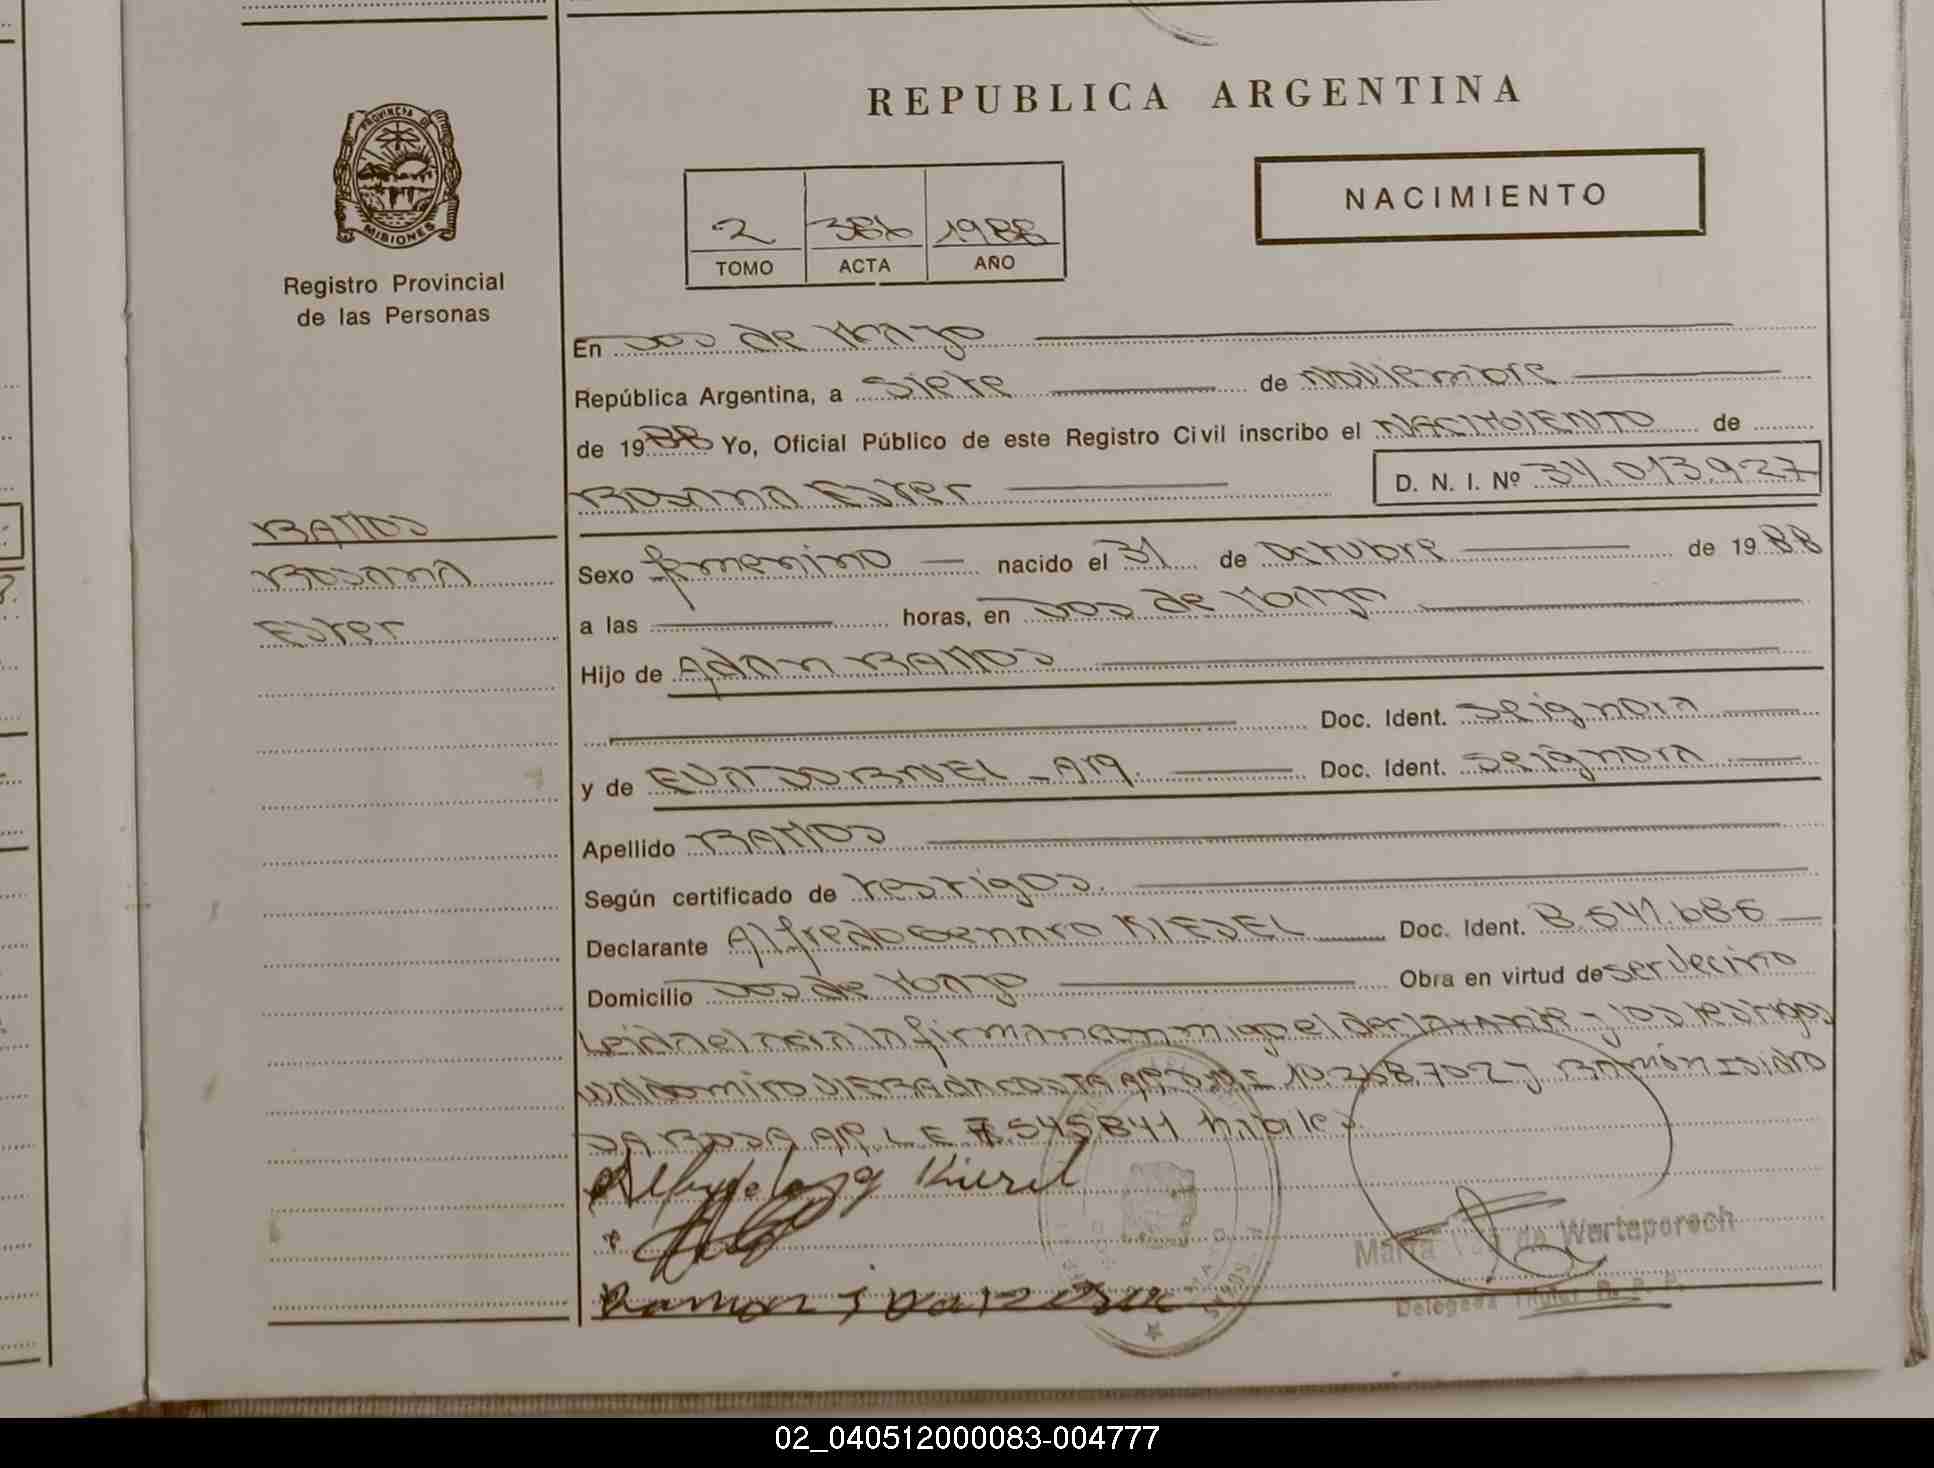 REPUBLICA ARGENTINA
PROVINCIA DE
MISIONES
Registro Provincial
de las Personas
NACIMIENTO
2 386 1988
TOMO ACTA AÑO
En Dos de Mayo
República Argentina, a siete de Noviembre
de 1988 Yo, Oficial Público de este Registro Civil inscribo el NACIMIENTO de
Rosana Ester D. N. I. Nº 34.013.927
RAMOS
Rosana
Ester
Sexo femenino nacido el 31 de Octubre de 1988
a las horas, en Dos de Mayo
Hijo de Adan RAMOS
Doc. Ident. se ignora
y de EVA DORNEL - Arg. Doc. Ident. se ignora
Apellido RAMOS
Según certificado de testigos.
Declarante Alfredo Genaro KIESEL Doc. Ident. 8.541.686
Domicilio Dos de Mayo Obra en virtud de ser vecino
Leida el acta la firman conmigo el declarante y los testigos
Waldomiro VIERA DA COSTA Ar D.N.I 10.268.702 y Ramón Isidro
DA ROSA AR. L E 7545841 habiles
Kiesel
Ramon I Da Rosa
Marta de Warteporoch
Delegada Titular R. P. P.
02_040512000083-004777